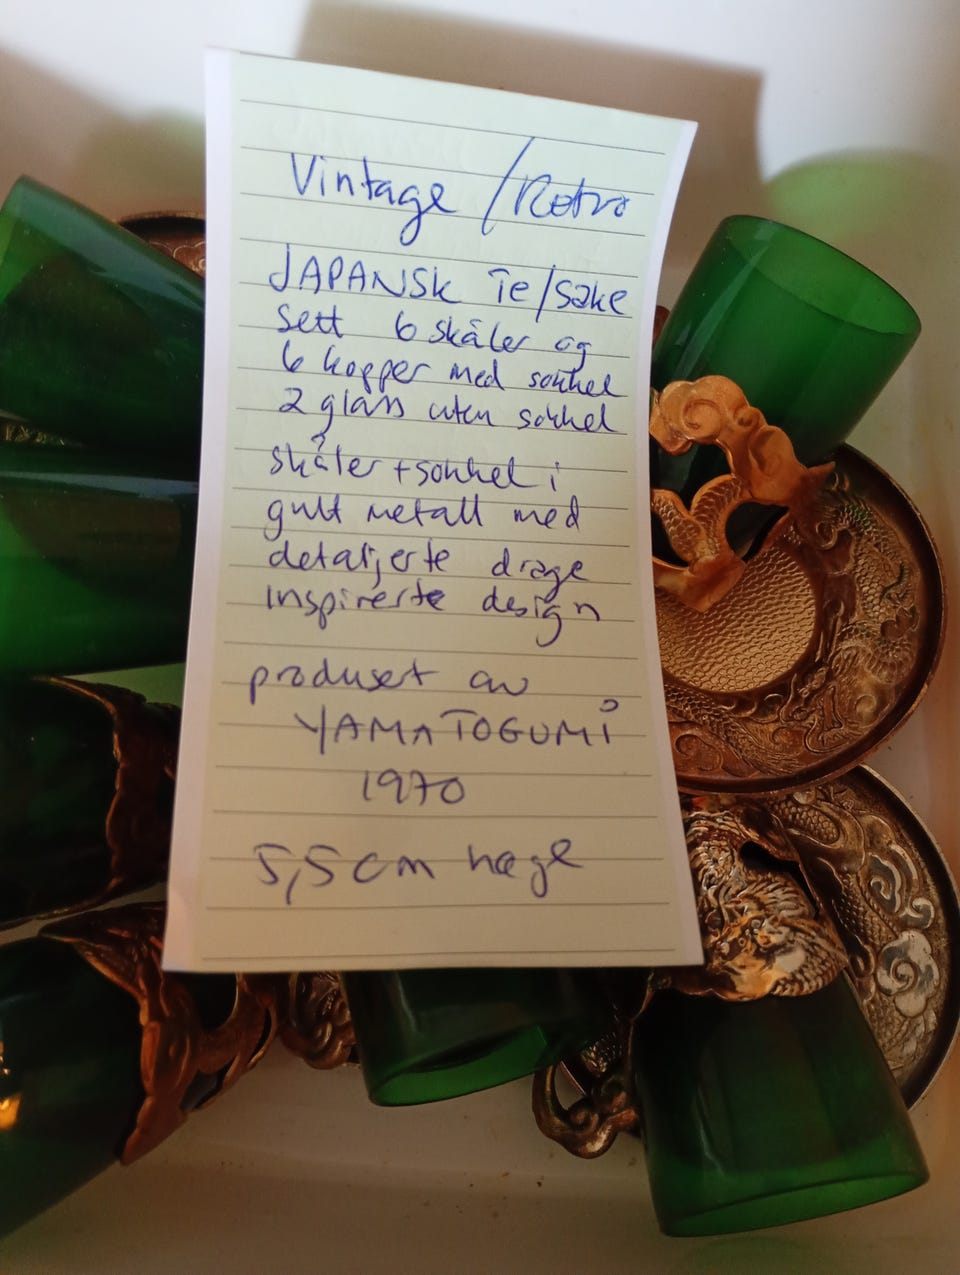 Vintage / Retro
JAPANSK Te/Sake
sett 6 skåler og
6 kopper med sokkel
2 glass uten sokkel
skåler + sokkel i
gult metall med
detaljerte drage
inspirerte design
produsert av
YAMATOGUMI
1970
5,5 cm høge